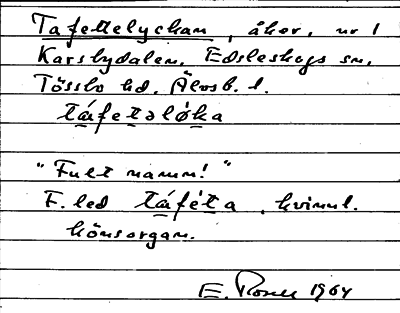 Tafettelyckan, åker, nr 1
Karsbydalen, Edsleskogs sn,
Tössbo hd. Älvsb. l.
táfetəlỏka
"Fult namn!"
F. led táféta, kvinnl.
könsorgan.
E. 1964